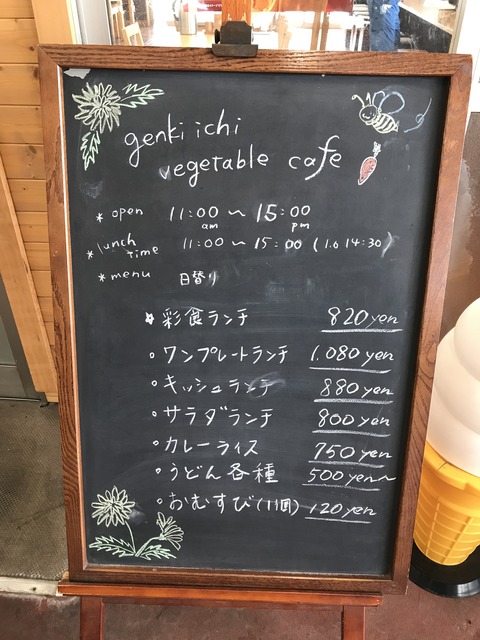 genki ichi
vegetable cafe
* open 11:00 am ~ 15:00 pm
* lunch time 11:00 ~ 15:00 (l.o 14:30)
* menu 日替り
☆ 彩食ランチ 820yen
• ワンプレートランチ 1.080yen
• キッシュランチ 880yen
• サラダランチ 800yen
• カレーライス 750yen
• うどん各種 500yen~
• おむすび(1個) 120yen